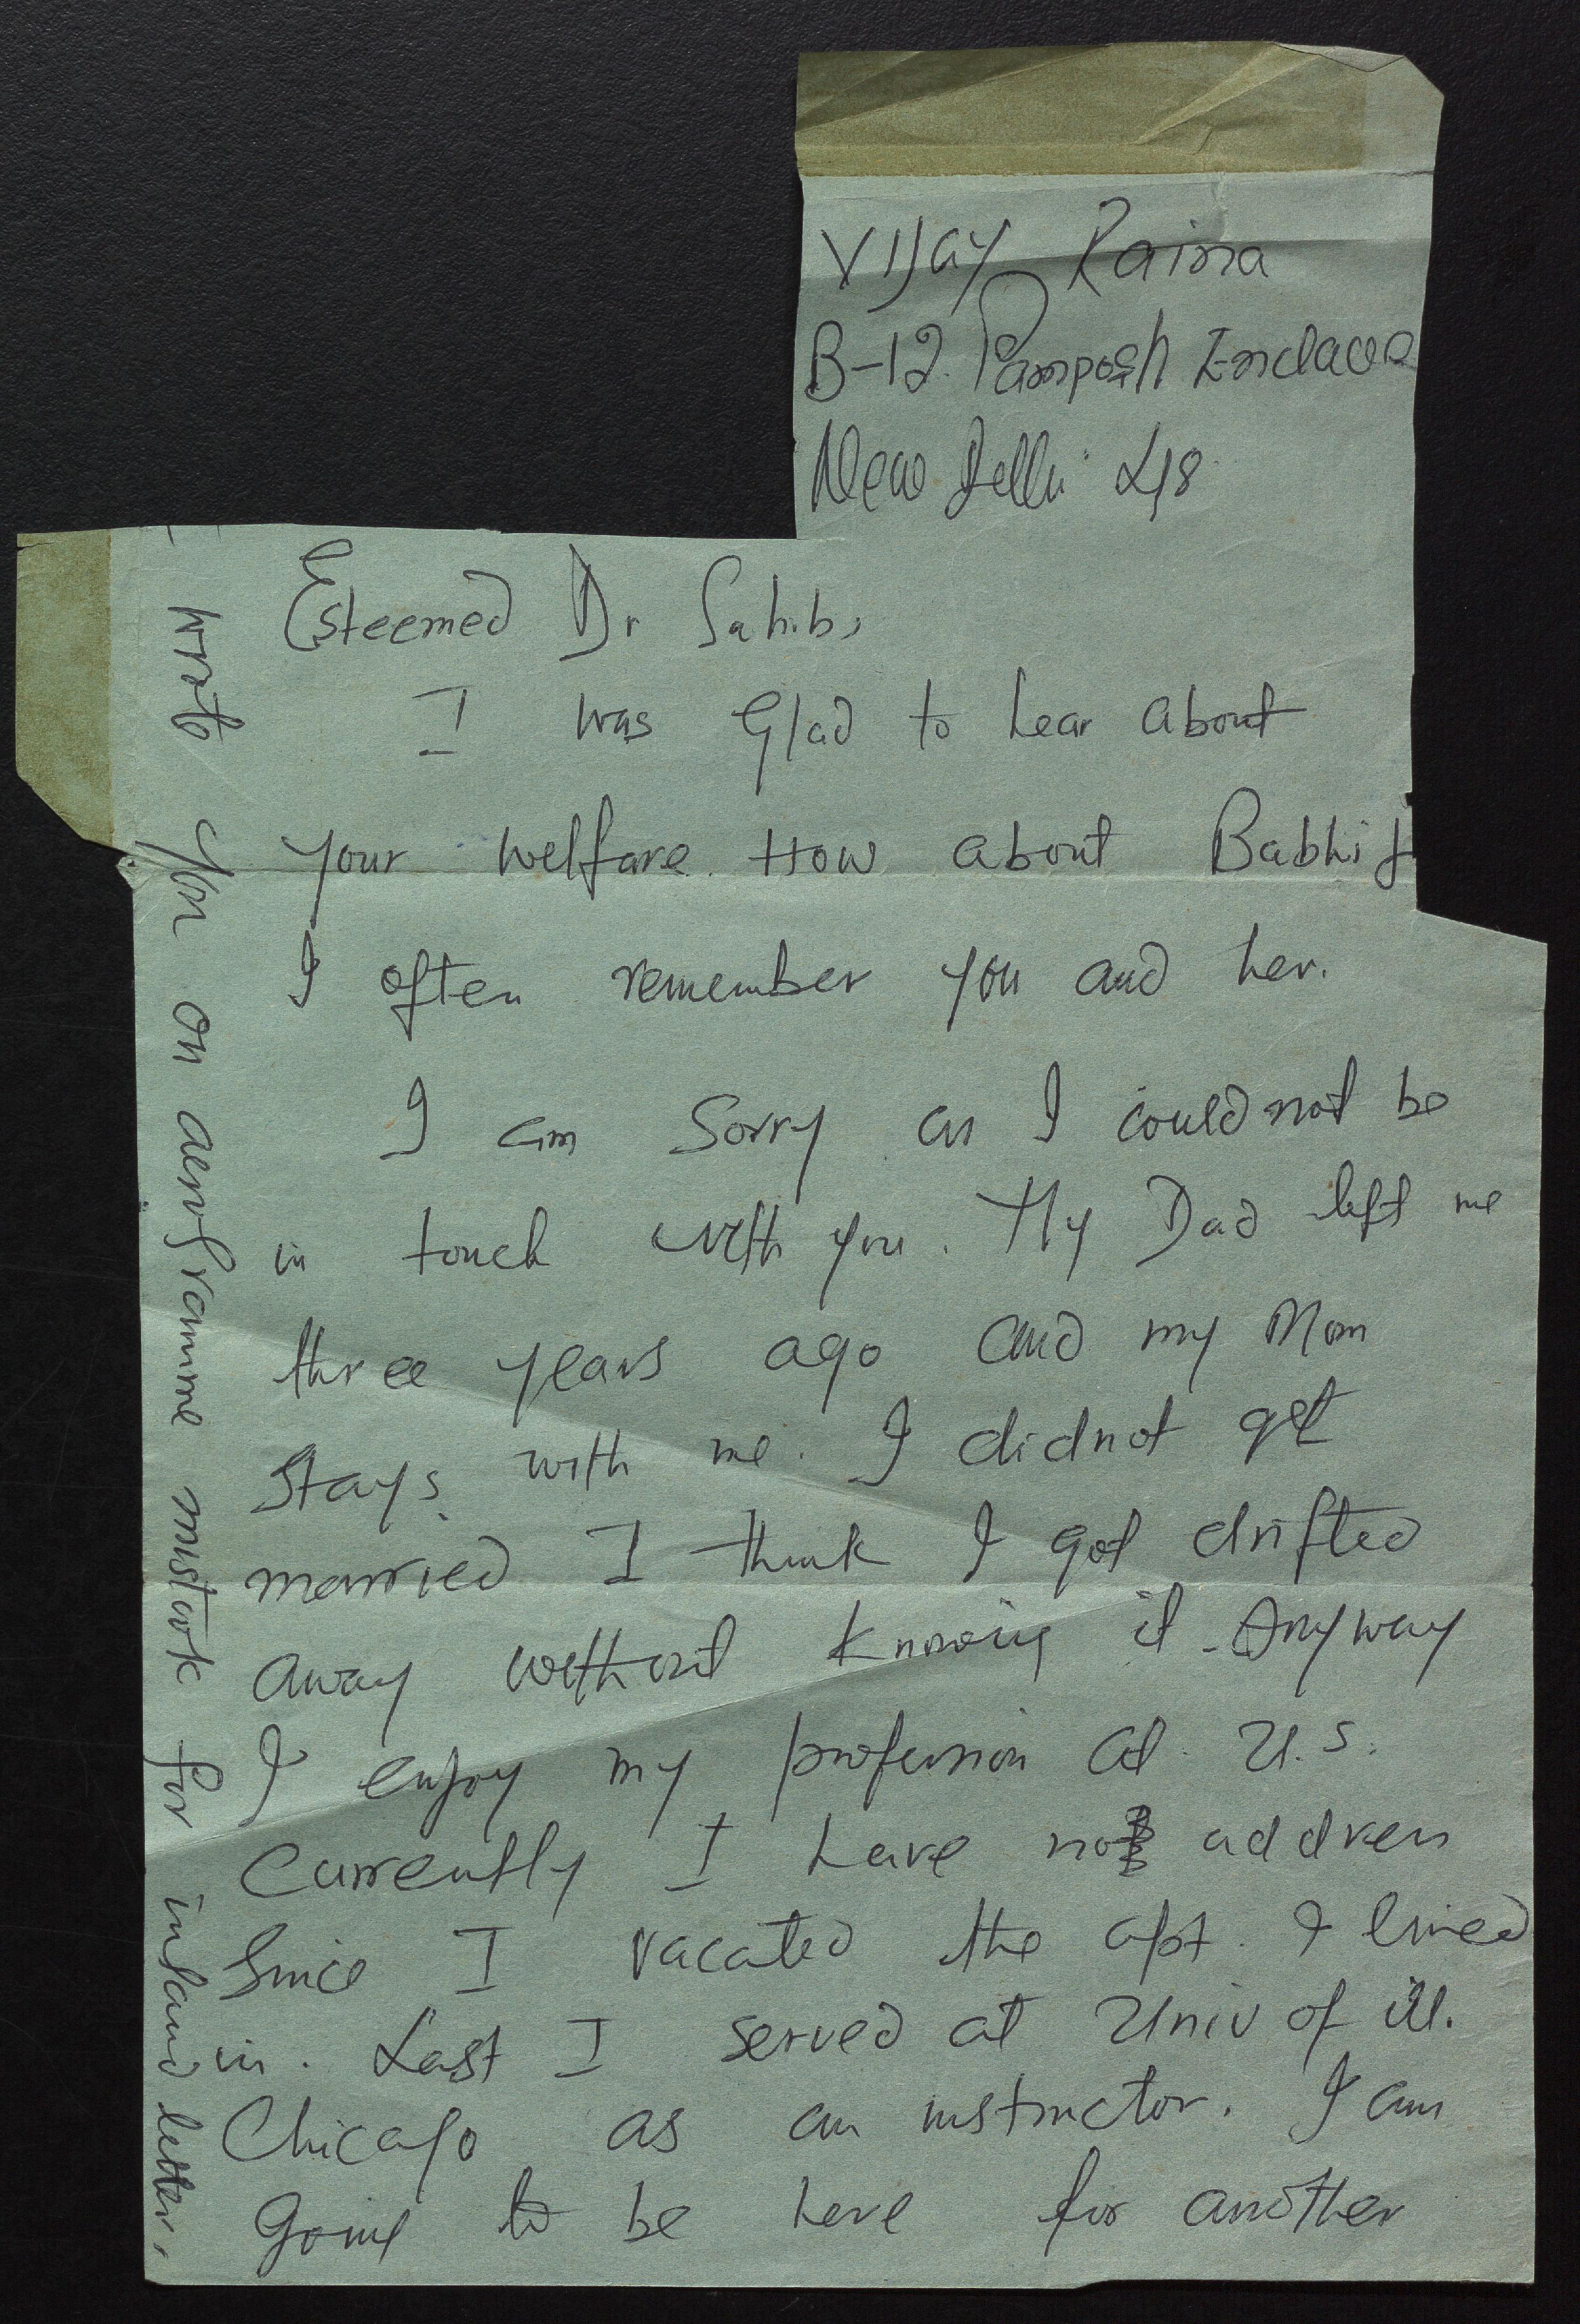 Vijay Raina
B-12. Pamposh Enclave
New Delhi 48.
Esteemed Dr Sahib,
I was Glad to hear about
your welfare. How about Babhi J
I often remember you and her.
I am Sorry as I could not be
in touch with you. My Dad left me
three years ago and my Mom
stays with me. I didnot get
married. I think I got drifted
away without knowing it. Anyway
I enjoy my profession at U.S.
Currently I have no address
Since I vacated the apt. I lived
in. Last I served at Univ of ill.
Chicago as an instructor. I am
Going to be here for another
I wrote you on aerogramme mistook for inland letter.